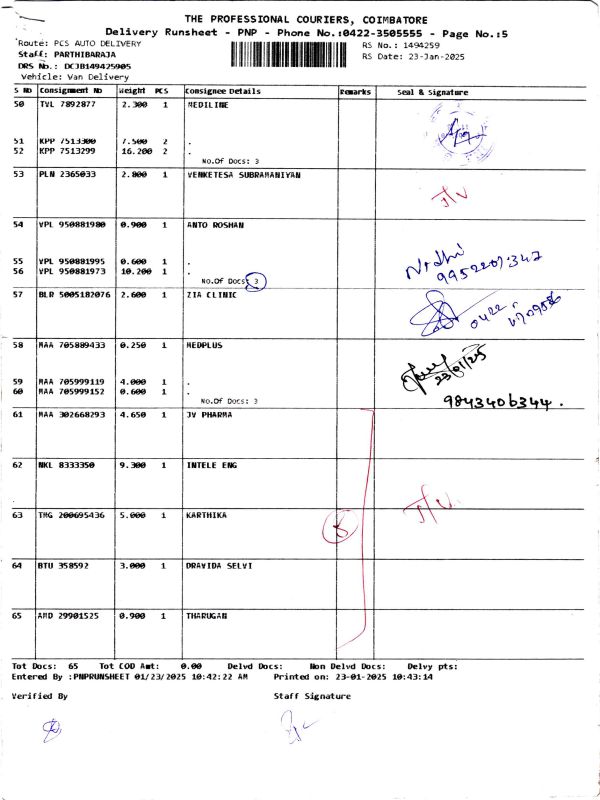 THE PROFESSIONAL COURIERS, COIMBATORE
Delivery Runsheet - PNP - Phone No.:0422-3505555 - Page No.:5
Route: PCS AUTO DELIVERY RS No.: 1494259
Staff: PARTHIBARAJA RS Date: 23-Jan-2025
DRS No.: DCJB149425905
Vehicle: Van Delivery
S No Consignment No Weight PCS Consignee Details Remarks Seal & Signature
50 TVL 7892877 2.300 1 MEDILINE
51 KPP 7513300 7.500 2 .
52 KPP 7513299 16.200 2 .
No.Of Docs: 3
53 PLN 2365033 2.800 1 VENKETESA SUBRAMANIYAN
54 VPL 950881980 0.900 1 ANTO ROSHAN
55 VPL 950881995 0.600 1 .
Nidhi
56 VPL 950881973 10.200 1 .
9952207347
No.Of Docs: 3
57 BLR 5005182076 2.600 1 ZIA CLINIC
0422
58 MAA 705889433 0.250 1 MEDPLUS
23/01/25
59 MAA 705999119 4.000 1 .
60 MAA 705999152 0.600 1 .
No.Of Docs: 3
9843406344.
61 MAA 302668293 4.650 1 JV PHARMA
62 NKL 8333350 9.300 1 INTELE ENG
63 TMG 200695436 5.000 1 KARTHIKA
64 BTU 358592 3.000 1 DRAVIDA SELVI
65 AMD 29901525 0.900 1 THARUGAN
Tot Docs: 65 Tot COD Amt: 0.00 Delvd Docs: Non Delvd Docs: Delvy pts:
Entered By :PNPRUNSHEET 01/23/2025 10:42:22 AM Printed on: 23-01-2025 10:43:14
Verified By Staff Signature